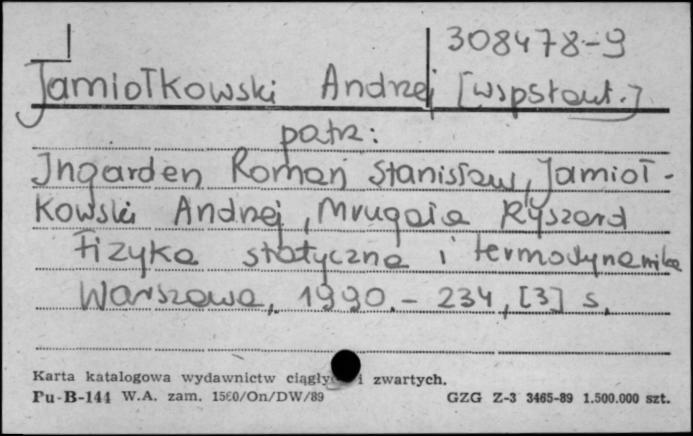 308478-9
Jamiołkowski Andrzej [współaut.]
patrz:
Ingarden Roman Stanisław, Jamioł-
kowski Andrzej, Mrugała Ryszard
Fizyka statyczna i termodynamika
Warszawa, 1990. - 234, [3] s.
Karta katalogowa wydawnictw ciągłych i zwartych.
Pu-B-144 W.A. zam. 1560/On/DW/89 GZG Z-3 3465-89 1.500.000 szt.